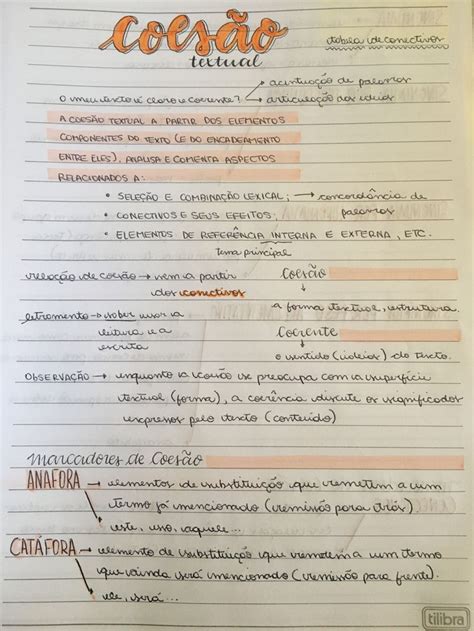 Coesão
textual
tabela de conectivos
acentuação de palavras
O meu texto é claro e coerente? → articulação das ideias
A COESÃO TEXTUAL A PARTIR DOS ELEMENTOS
COMPONENTES DO TEXTO (E DO ENCADEAMENTO
ENTRE ELES), ANALISA E COMENTA ASPECTOS
RELACIONADOS A:
• SELEÇÃO E COMBINAÇÃO LEXICAL; → concordância de
• CONECTIVOS E SEUS EFEITOS; palavras
• ELEMENTOS DE REFERÊNCIA INTERNA E EXTERNA, ETC.
tema principal
relação de coesão → vem a partir
dos conectivos
Coesão
→ a forma textual, estrutura.
letramento → saber usar a
leitura e a
escrita
Coerente
→ o sentido (ideias) do texto.
OBSERVAÇÃO → enquanto a coesão se preocupa com a superfície
textual (forma), a coerência discute os significados
expressos pelo texto (conteúdo)
Marcadores de Coesão
ANÁFORA → elementos de substituição que remetem a um
termo já mencionado (remissão para trás)
este, isso, aquele...
CATÁFORA → elemento de substituição que remetem a um termo
que ainda será mencionado (remissão para frente).
ele, será...
tilibra